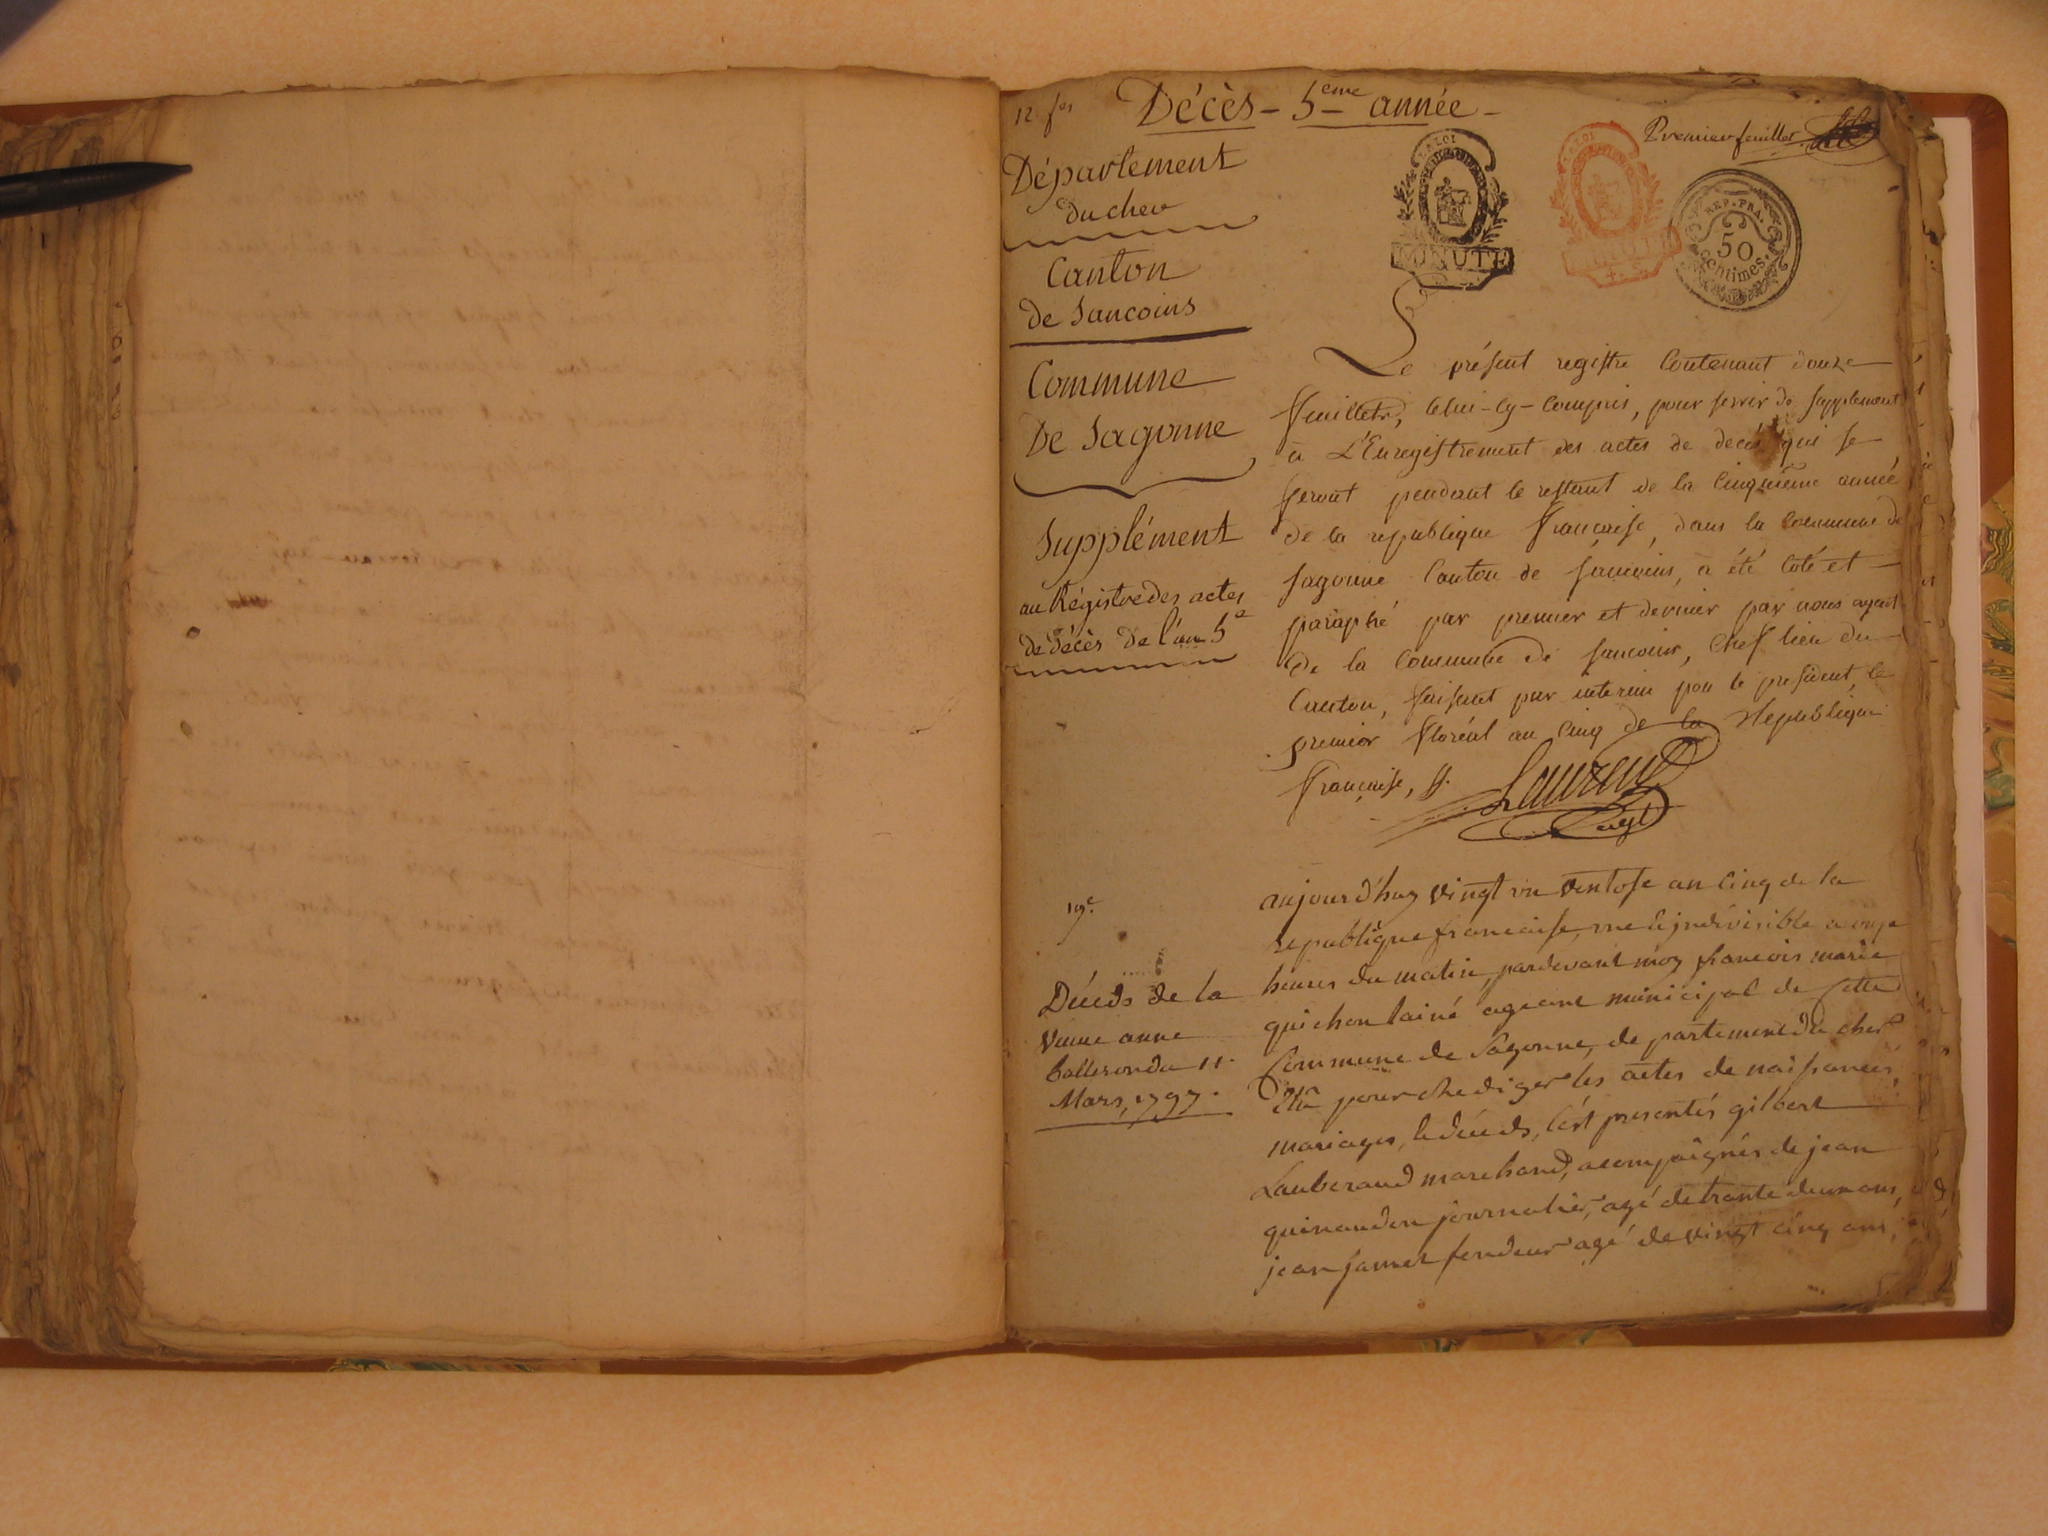 12 f.es
Décès - 5eme année -
Premier feuillet
Département
du cher
Canton
de Sancoins
Commune
De Sagonne
Supplément
au Régistre des actes
de décès de l'an 5e
LA LOI
MINUTE
LA LOI
REP. FRA.
50
centimes.
Le présent registre Contenant douze
feuillets, Celui-Cy-Compris, pour servir de supplement
à L'Enregistrement des actes de decés qui se
feront pendant le restant de la Cinquieme année
de la republique française, dans la Commune de
sagonne Canton de sancoins, a été Coté et
paraphé par premier et dernier par nous agent
de la Commune de sancoins, Chef lieu du
Canton, faisant par interim pour le president, le
premier floréal an Cinq de la Republique
française, ff. Laurent
agt
19e
Décds de la
veuve anne
balleron du 11.
Mars, 1797.
aujourd'huy vingt un ventose an Cinq de la
republique francaise, une & jndivisible a onze
heures du matin, pardevant moy francois marie
quichon lainé ageant municipal de Cette
Commune de Sagonne, de partement du cher
Elu pour Rhediger les actes de naissances,
mariages, & décds, C'est presentés gilbert
Lauberand marchand, acompâgnés de jean
guinaudon journalier, agé de trante deux ans,
jean jamet fendeur agé de vingt cinq ans,